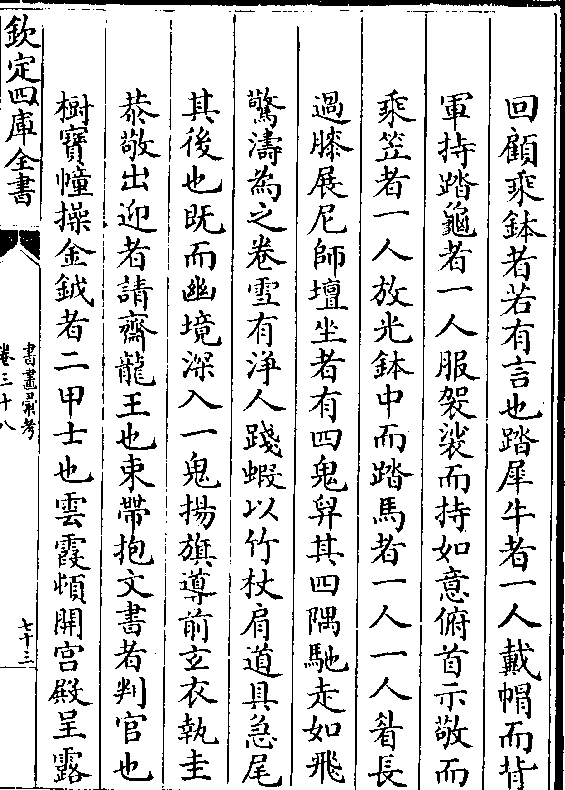 回顧乘鉢者若有言也踏犀牛者一人戴帽而背
軍持踏龜者一人服袈裟而持如意俯首示敬而
乘笠者一人放光鉢中而踏馬者一人一人眉長
過膝展尼師壇坐者有四鬼舁其四隅馳走如飛
驚濤為之卷雪有浄人踐蝦以竹杖肩道具急尾
其後也既而幽境深入一鬼揚旗導前玄衣執圭
恭敬出迎者請齋龍王也束帶抱文書者判官也
橱寶幢操金鉞者二甲士也雲霞頓開宫殿呈露
欽定四庫全書
書畫彙考
卷三十八
七十三